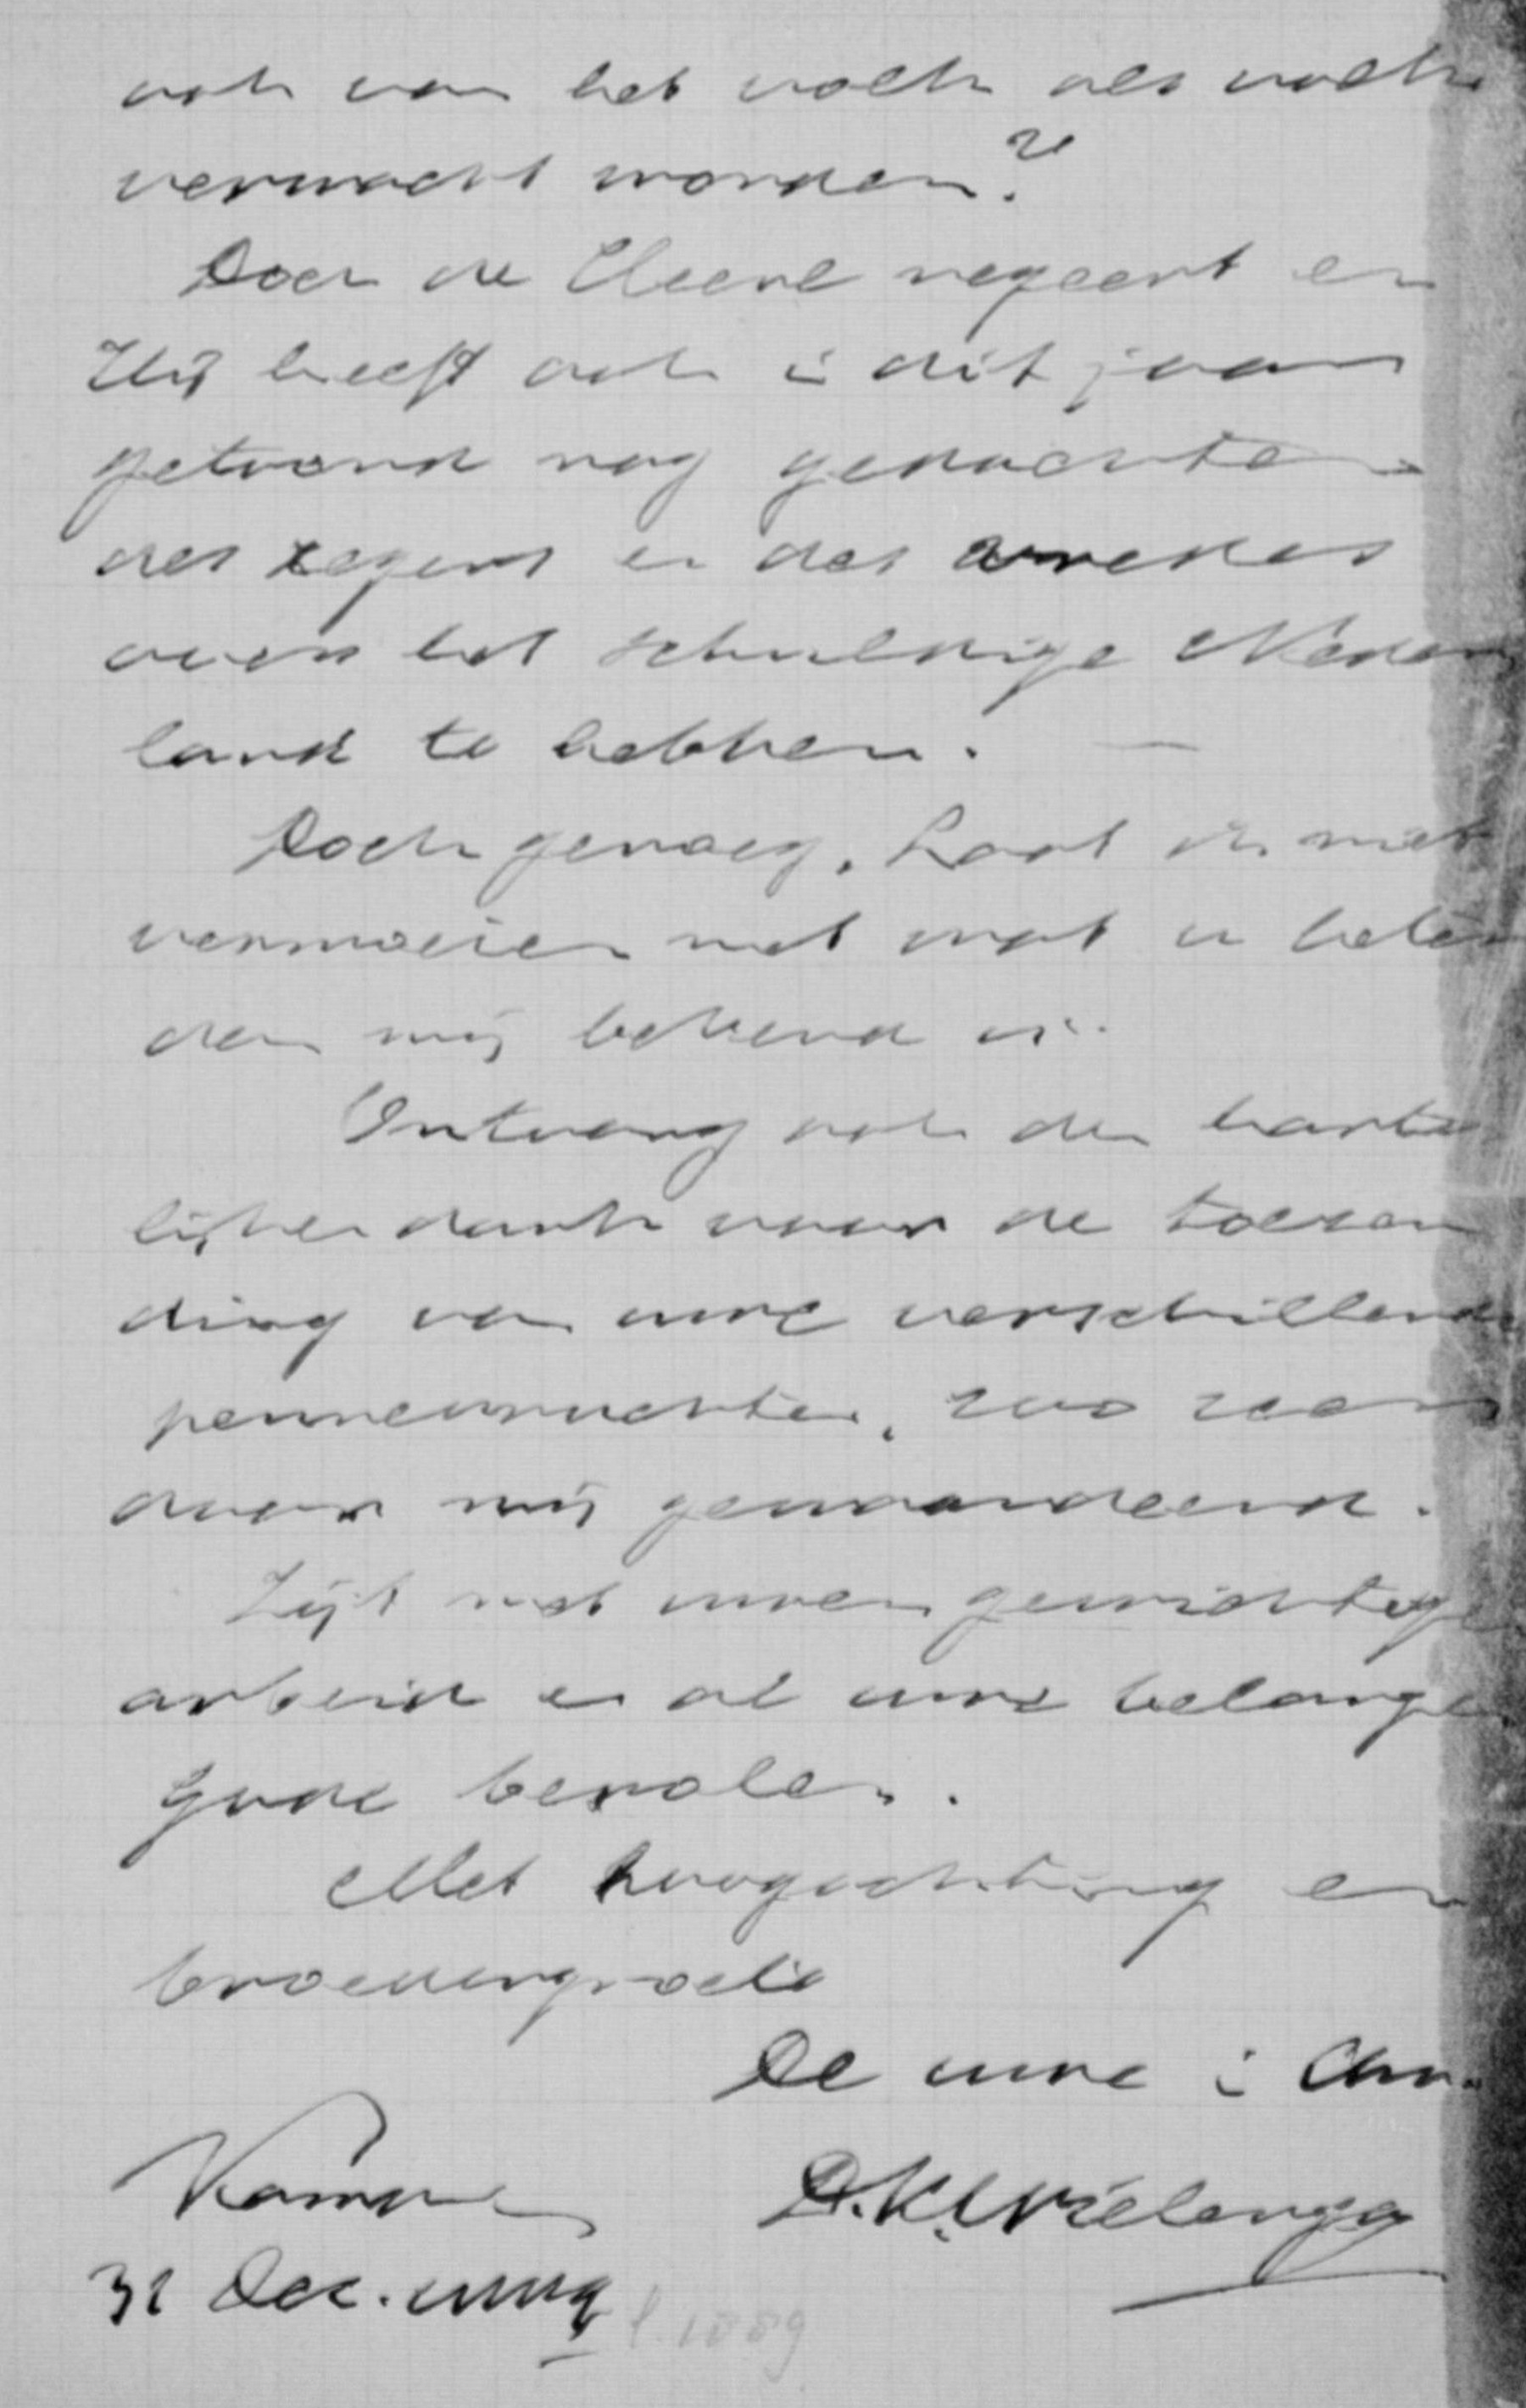 ook van het volk als volk
verwacht worden?
Doch de Heere regeert en
Hij heeft ook in dit jaar
getoond nog gedachten
des zegens en des vredes
over het schuldige Neder
land te hebben. —
Doch genoeg. Laat ik niet
vermoeien met wat u beter
dan mij bekend is.
Ontvang ook den harte
lijken dank voor de toezen
ding van uwe verschillende
pennevruchten, zoo zeer
door mij gewaardeerd.
Zijt met uwen gewichtigen
arbeid en al uwe belangen
Gode bevolen.
Met hoogachting en
broedergroete
De uwe in Chr.
Kampen D.K. Wielenga
31 Dec.